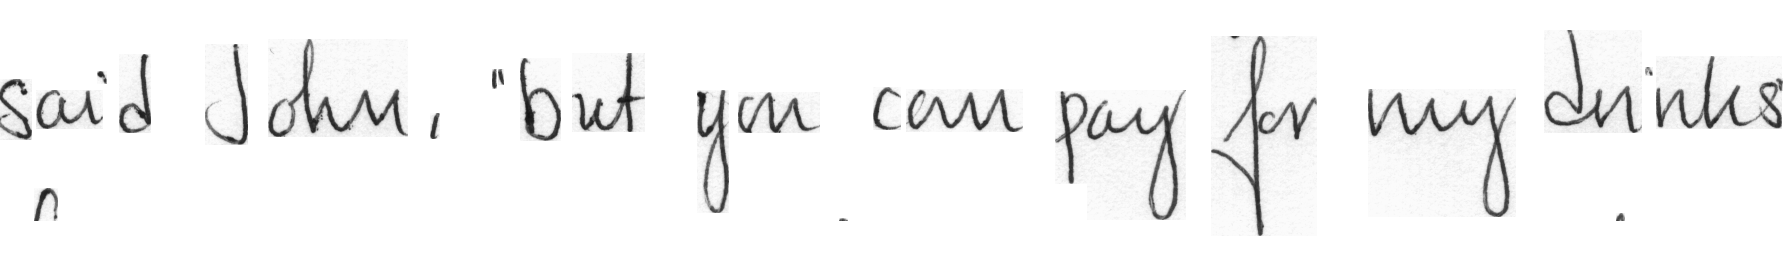 said John, "but you can pay for my drinks